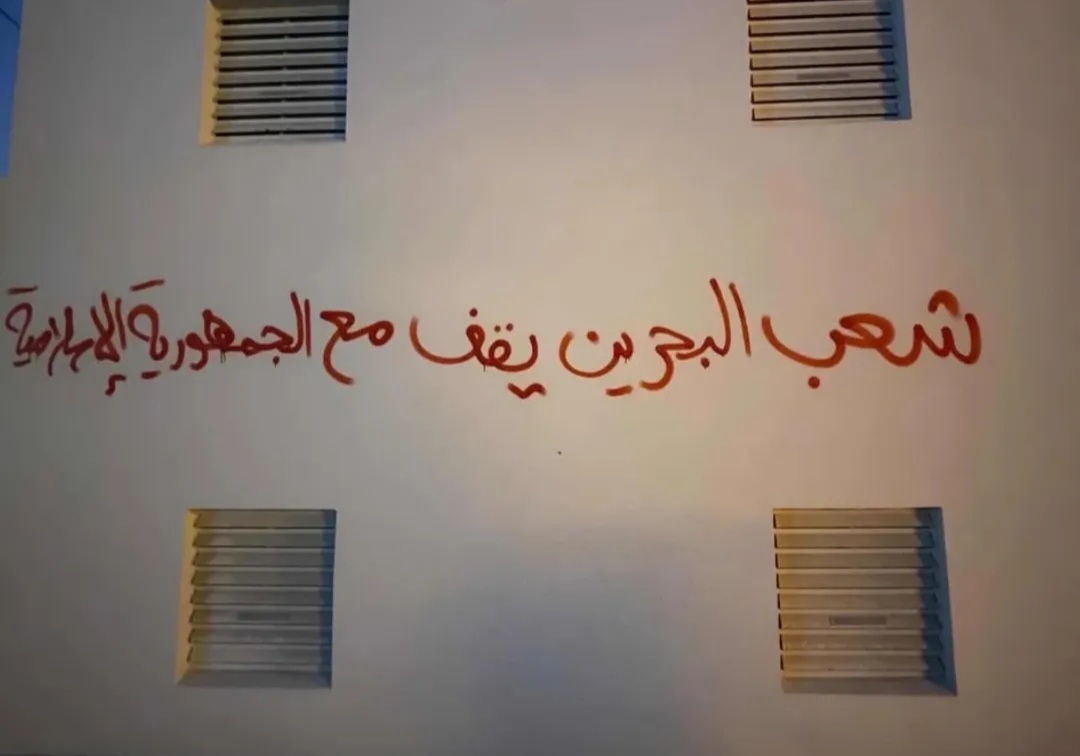 شعب البحرين يقف مع الجمهورية الإسلامية